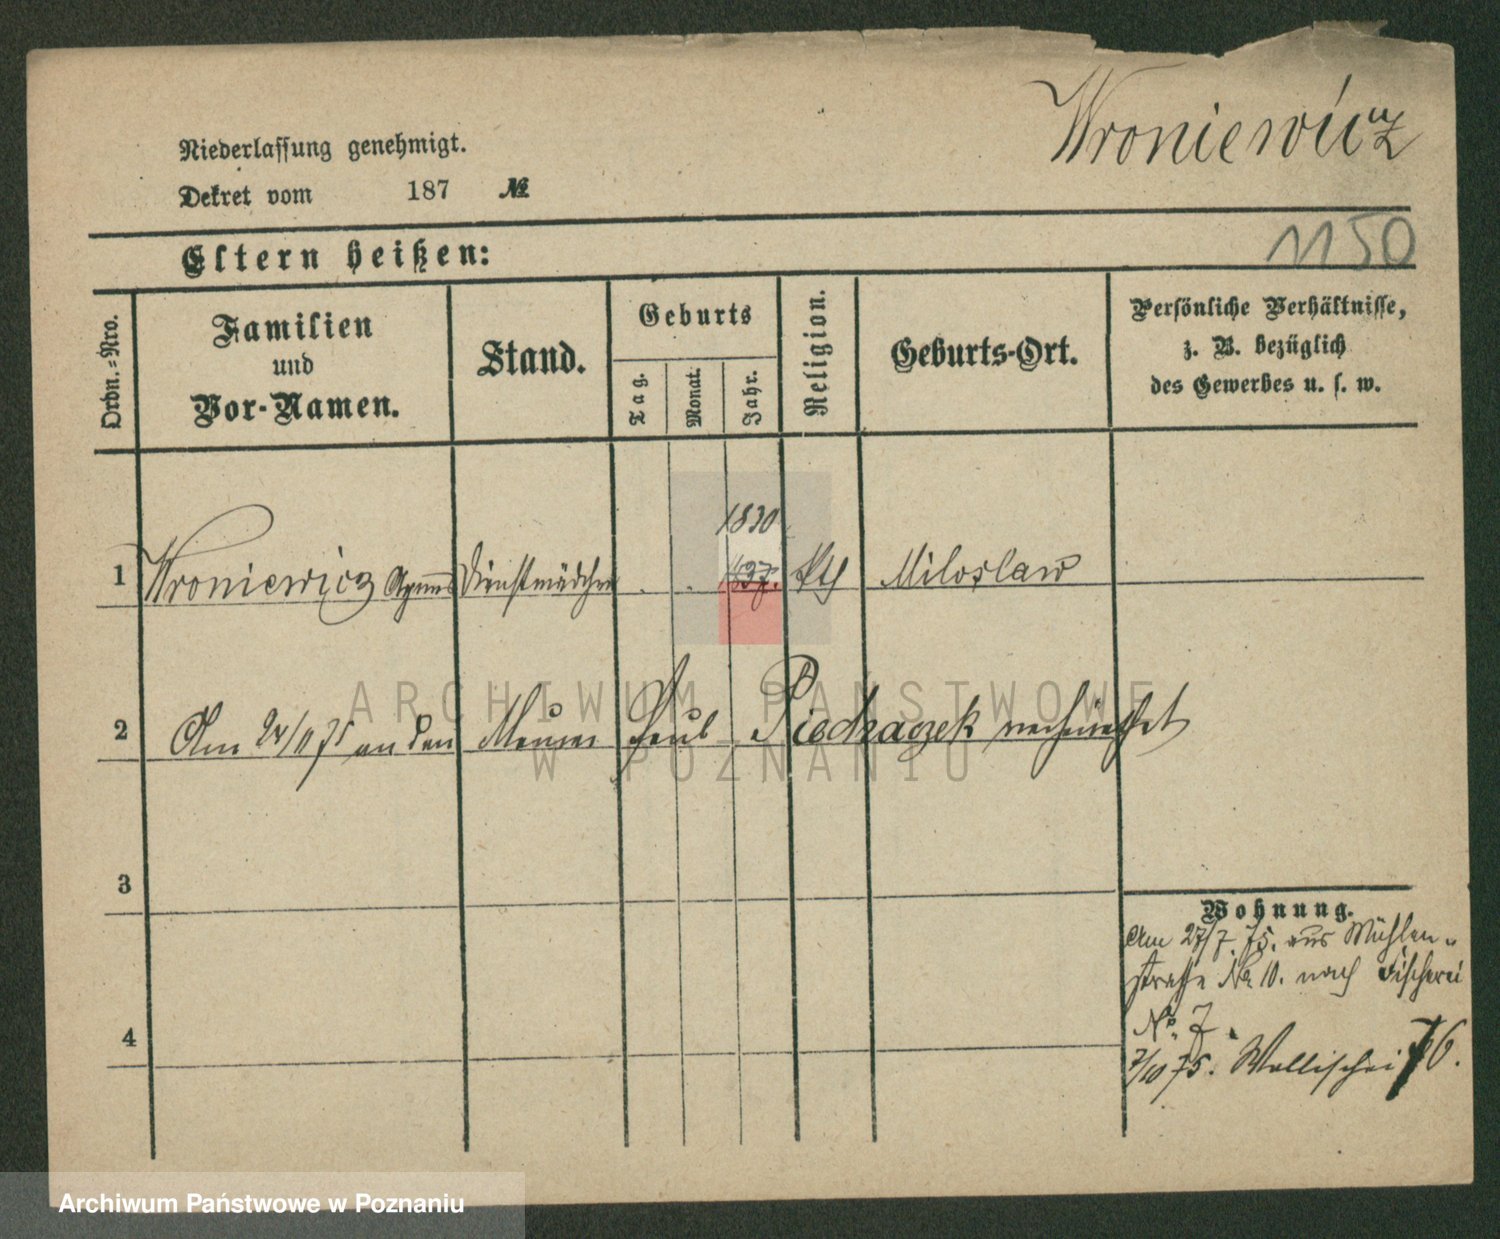 Wroniewicz
Niederlassung genehmigt.
Dekret vom 187 №
1150
Eltern heißen:
Ordn.-Nro.
Familien
und
Vor-Namen.
Stand.
Geburts
Tag.
Monat.
Jahr.
Religion.
Geburts-Ort.
Persönliche Verhältnisse,
z. B. bezüglich
des Gewerbes u. s. w.
1830
1 Wroniewicz Agnes Dienstmädchen . . 1837. kth Miloslaw
2 Am 24/11 75 an den Maurer Paul Piedrazek verheirathet
3
4
Wohnung.
Am 27/7. 75. aus Mühlen-
straße No 10. nach Fischerei
No. 7.
7/10 75. Wallischei 76.
ARCHIWUM PAŃSTWOWE
W POZNANIU
Archiwum Państwowe w Poznaniu